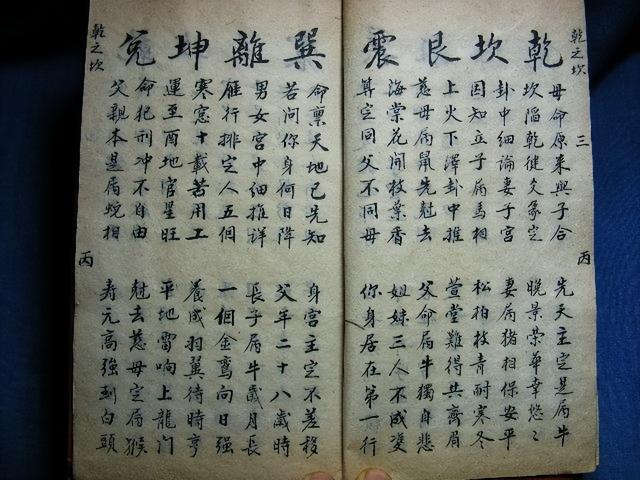 乾之坎
三
丙
乾坎艮震
母命原来與子合
先天主定是属牛
坎陷乾健爻象定
晚景荣華幸悠〻
卦中細論妻子宮
妻属猪相保安平
因知立子属馬相
松柏枝青耐寒冬
上火下澤卦中推
萱堂難得共齊眉
慈母属鼠先尅去
父命属牛獨自悲
海棠花開枝葉香
姐妹三人不成雙
算定同父不同母
你身居在第一行
巽離坤兌
命禀天地已先知
身宮主定不差移
若問你身何日降
父年二十八歲時
男女宮中細推詳
長子属牛歲月長
雁行排定人五個
一個金鸞向日强
寒窓十載苦用工
養成羽翼待時亨
運至酉地官星旺
平地雷响上龍門
命犯刑冲不自由
尅去慈母定属猴
父親本是属蛇相
寿元高强到白頭
乾之坎
丙